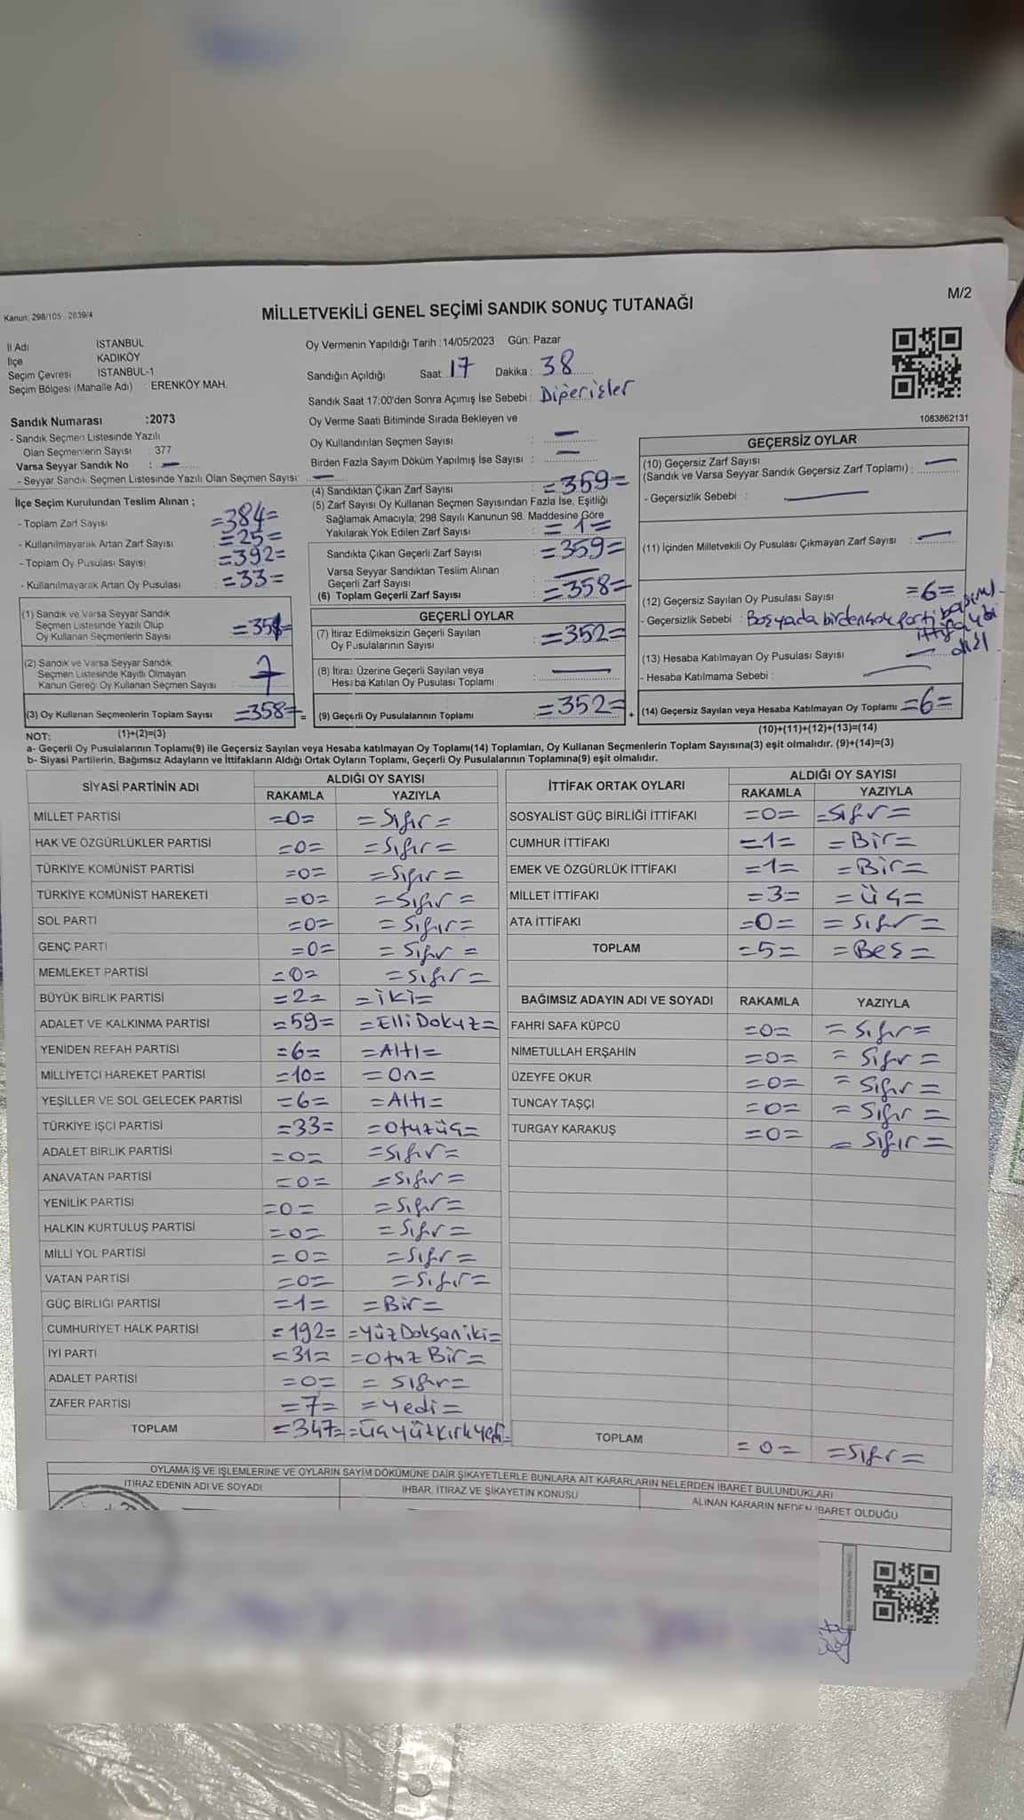 M/2
Kanun: 298/105 - 2839/4
MİLLETVEKİLİ GENEL SEÇİMİ SANDIK SONUÇ TUTANAĞI
İl Adı İSTANBUL
İlçe KADIKÖY
Seçim Çevresi İSTANBUL-1
Seçim Bölgesi (Mahalle Adı) ERENKÖY MAH.
Oy Vermenin Yapıldığı Tarih : 14/05/2023 Gün: Pazar
Sandığın Açıldığı Saat 17 Dakika : 38
Sandık Saat 17:00'den Sonra Açmış İse Sebebi :
Sandık Numarası :2073
- Sandık Seçmen Listesinde Yazılı
Olan Seçmenlerin Sayısı : 377
Varsa Seyyar Sandık No : —
- Seyyar Sandık Seçmen Listesinde Yazılı Olan Seçmen Sayısı: —
Oy Verme Saati Bitiminde Sırada Bekleyen ve
Oy Kullandırılan Seçmen Sayısı : —
Birden Fazla Sayım Döküm Yapılmış İse Sayısı : —
1083862131
İlçe Seçim Kurulundan Teslim Alınan ;
- Toplam Zarf Sayısı =384=
- Kullanılmayarak Artan Zarf Sayısı =25=
- Toplam Oy Pusulası Sayısı =392=
- Kullanılmayarak Artan Oy Pusulası =33=
(1) Sandık ve Varsa Seyyar Sandık
Seçmen Listesinde Yazılı Olup
Oy Kullanan Seçmenlerin Sayısı
(2) Sandık ve Varsa Seyyar Sandık
Seçmen Listesinde Kayıtlı Olmayan
Kanun Gereği Oy Kullanan Seçmen Sayısı 7
(3) Oy Kullanan Seçmenlerin Toplam Sayısı =358=
(1)+(2)=(3)
(4) Sandıktan Çıkan Zarf Sayısı =359=
(5) Zarf Sayısı Oy Kullanan Seçmen Sayısından Fazla İse, Eşitliği
Sağlamak Amacıyla; 298 Sayılı Kanunun 98. Maddesine Göre
Yakılarak Yok Edilen Zarf Sayısı =1=
Sandıkta Çıkan Geçerli Zarf Sayısı =359=
Varsa Seyyar Sandıktan Teslim Alınan
Geçerli Zarf Sayısı —
(6) Toplam Geçerli Zarf Sayısı =358=
GEÇERLİ OYLAR
(7) İtiraz Edilmeksizin Geçerli Sayılan
Oy Pusulalarının Sayısı =352=
(8) İtiraz Üzerine Geçerli Sayılan veya
Hesaba Katılan Oy Pusulası Toplamı —
(9) Geçerli Oy Pusulalarının Toplamı =352=
GEÇERSİZ OYLAR
(10) Geçersiz Zarf Sayısı
(Sandık ve Varsa Seyyar Sandık Geçersiz Zarf Toplamı) : —
- Geçersizlik Sebebi : —
(11) İçinden Milletvekili Oy Pusulası Çıkmayan Zarf Sayısı : —
(12) Geçersiz Sayılan Oy Pusulası Sayısı =6=
- Geçersizlik Sebebi : Boş yada birden çok parti
(13) Hesaba Katılmayan Oy Pusulası Sayısı —
- Hesaba Katılmama Sebebi : —
(14) Geçersiz Sayılan veya Hesaba Katılmayan Oy Toplamı =6=
(10)+(11)+(12)+(13)=(14)
NOT:
a- Geçerli Oy Pusulalarının Toplamı(9) ile Geçersiz Sayılan veya Hesaba katılmayan Oy Toplamı(14) Toplamları, Oy Kullanan Seçmenlerin Toplam Sayısına(3) eşit olmalıdır. (9)+(14)=(3)
b- Siyasi Partilerin, Bağımsız Adayların ve İttifakların Aldığı Ortak Oyların Toplamı, Geçerli Oy Pusulalarının Toplamına(9) eşit olmalıdır.
SİYASİ PARTİNİN ADI ALDIĞI OY SAYISI
RAKAMLA YAZIYLA
MİLLET PARTİSİ =0= =Sıfır=
HAK VE ÖZGÜRLÜKLER PARTİSİ =0= =Sıfır=
TÜRKİYE KOMÜNİST PARTİSİ =0= =Sıfır=
TÜRKİYE KOMÜNİST HAREKETİ =0= =Sıfır=
SOL PARTİ =0= =Sıfır=
GENÇ PARTİ =0= =Sıfır=
MEMLEKET PARTİSİ =0= =Sıfır=
BÜYÜK BİRLİK PARTİSİ =2= =iki=
ADALET VE KALKINMA PARTİSİ =59= =Elli Dokuz=
YENİDEN REFAH PARTİSİ =6= =Altı=
MİLLİYETÇİ HAREKET PARTİSİ =10= =On=
YEŞİLLER VE SOL GELECEK PARTİSİ =6= =Altı=
TÜRKİYE İŞÇİ PARTİSİ =33= =Otuzüç=
ADALET BİRLİK PARTİSİ =0= =Sıfır=
ANAVATAN PARTİSİ =0= =Sıfır=
YENİLİK PARTİSİ =0= =Sıfır=
HALKIN KURTULUŞ PARTİSİ =0= =Sıfır=
MİLLİ YOL PARTİSİ =0= =Sıfır=
VATAN PARTİSİ =0= =Sıfır=
GÜÇ BİRLİĞİ PARTİSİ =1= =Bir=
CUMHURİYET HALK PARTİSİ =192= =Yüz Doksan iki=
İYİ PARTİ =31= =Otuz Bir=
ADALET PARTİSİ =0= =Sıfır=
ZAFER PARTİSİ =7= =Yedi=
TOPLAM =347= =Üçyüzkırkyedi=
İTTİFAK ORTAK OYLARI ALDIĞI OY SAYISI
RAKAMLA YAZIYLA
SOSYALİST GÜÇ BİRLİĞİ İTTİFAKI =0= =Sıfır=
CUMHUR İTTİFAKI =1= =Bir=
EMEK VE ÖZGÜRLÜK İTTİFAKI =1= =Bir=
MİLLET İTTİFAKI =3= =Üç=
ATA İTTİFAKI =0= =Sıfır=
TOPLAM =5= =Beş=
BAĞIMSIZ ADAYIN ADI VE SOYADI RAKAMLA YAZIYLA
FAHRİ SAFA KÜPCÜ =0= =Sıfır=
NİMETULLAH ERŞAHİN =0= =Sıfır=
ÜZEYFE OKUR =0= =Sıfır=
TUNCAY TAŞÇI =0= =Sıfır=
TURGAY KARAKUŞ =0= =Sıfır=
TOPLAM =0= =Sıfır=
OYLAMA İŞ VE İŞLEMLERİNE VE OYLARIN SAYIM DÖKÜMÜNE DAİR ŞİKAYETLERLE BUNLARA AİT KARARLARIN NELERDEN İBARET BULUNDUKLARI
İTİRAZ EDENİN ADI VE SOYADI İHBAR, İTİRAZ VE ŞİKAYETİN KONUSU ALINAN KARARIN NEDEN İBARET OLDUĞU